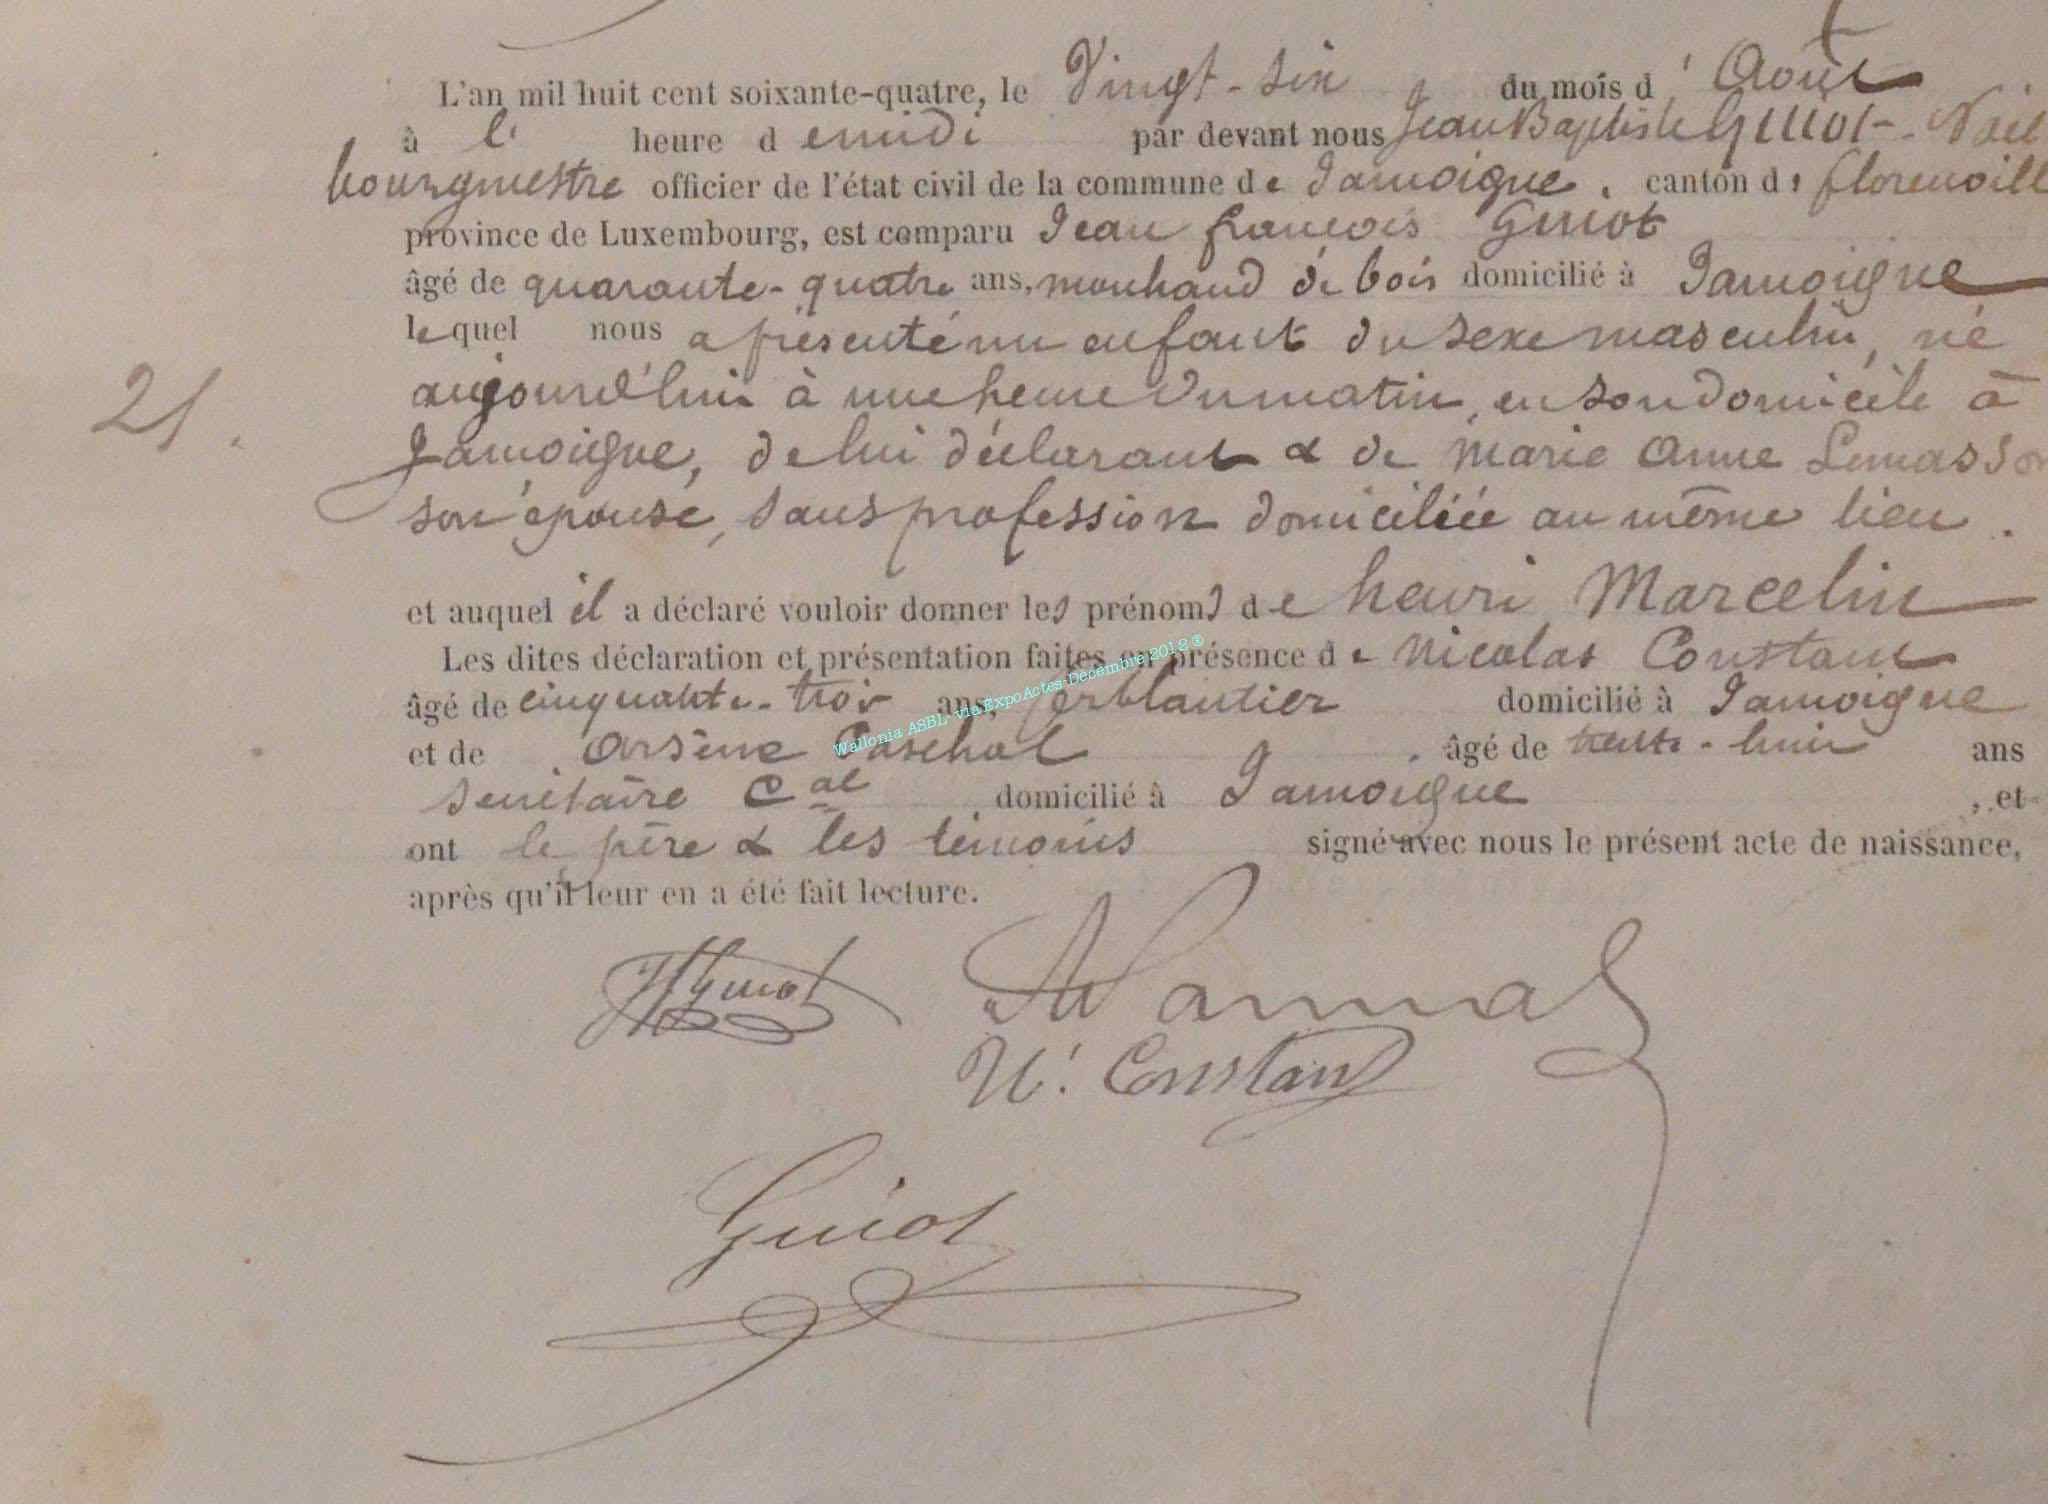 L'an mil huit cent soixante-quatre, le Vingt-six du mois d'Août
à l' heure de midi par devant nous Jean Baptiste Guiot-Noël
bourgmestre officier de l'état civil de la commune de Jamoigne, canton de florenville
province de Luxembourg, est comparu Jean françois Guiot
âgé de quarante-quatre ans, marchand de bois domicilié à Jamoigne
lequel nous a présenté un enfant du sexe masculin, né
21.
aujourd'hui à une heure du matin, en son domicile à
Jamoigne, de lui déclarant & de Marie Anne Lemasson
son épouse, sans profession domiciliée au même lieu.
et auquel il a déclaré vouloir donner les prénoms de henri Marcelin
Les dites déclaration et présentation faites en présence de Nicolas Constant
âgé de cinquante-trois ans, ferblantier domicilié à Jamoigne
Wallonia ASBL - via ExpoActes-Decembre 2012®
et de Arsène Paschal âgé de trente-huit ans
secrétaire Cal domicilié à Jamoigne, et
ont le père & les témoins signé avec nous le présent acte de naissance,
après qu'il leur en a été fait lecture.
Guiot
N. Constant
Guiot